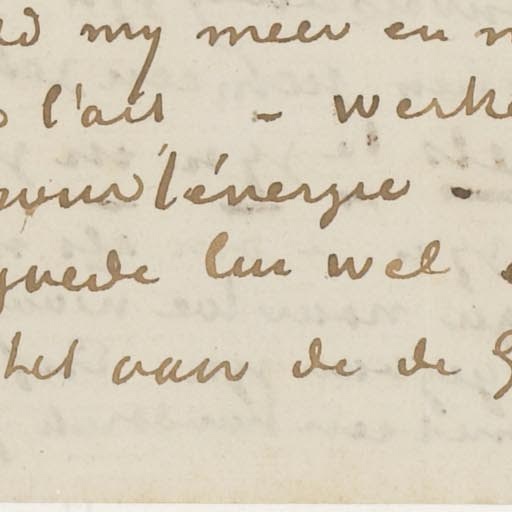 my meer en
l'art - werke
pour l'énergie -
goede lui wel
het aan de de